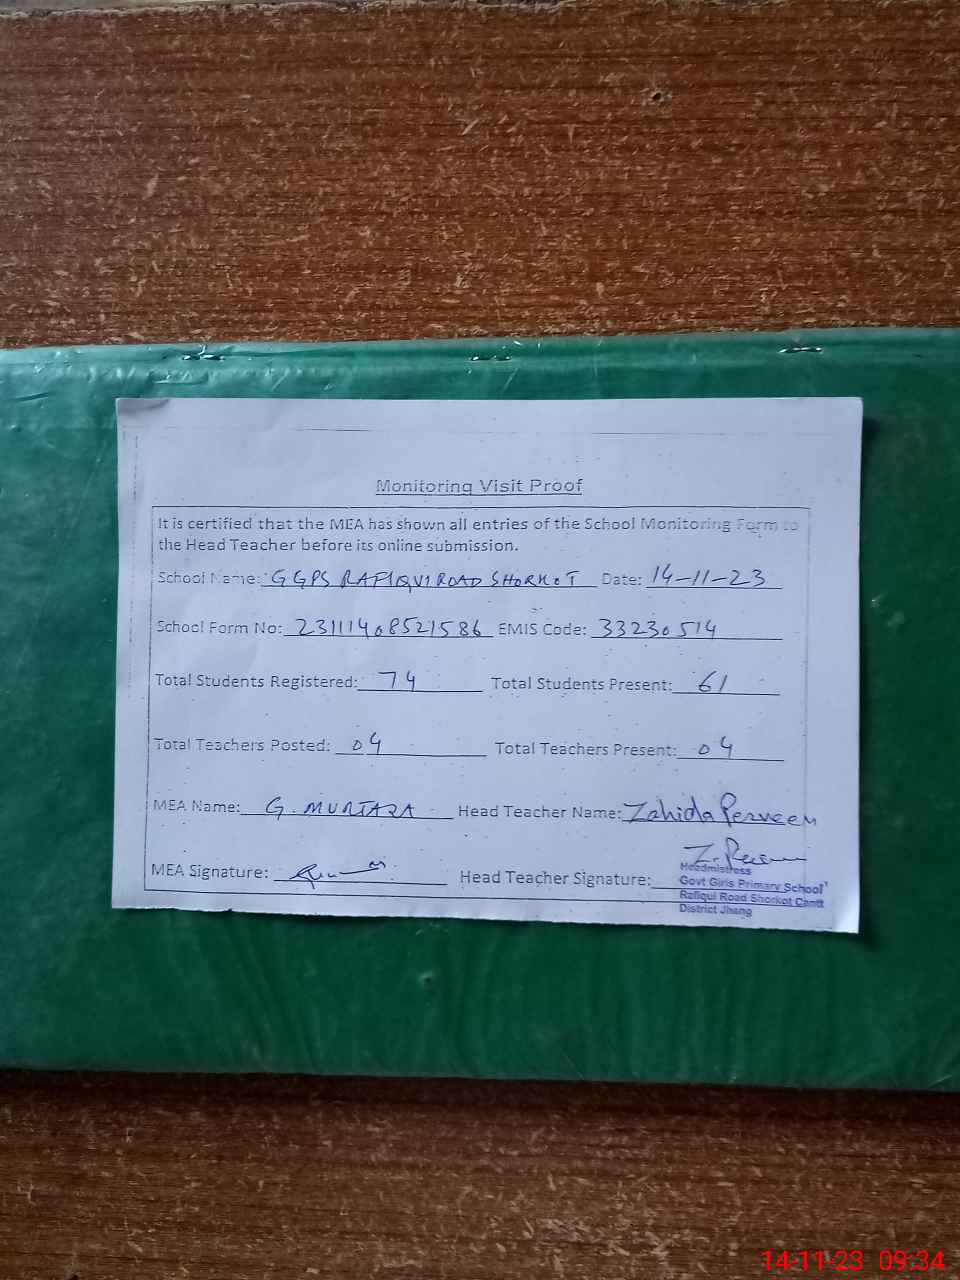 Monitoring Visit Proof
It is certified that the MEA has shown all entries of the School Monitoring Form to
the Head Teacher before its online submission.
School Name: GGPS RAFIQVI ROAD SHORKOT Date: 14-11-23
School Form No: 23111408521586 EMIS Code: 33230514
Total Students Registered: 74 Total Students Present: 61
Total Teachers Posted: 04 Total Teachers Present: 04
MEA Name: G. MURTAZA Head Teacher Name: Zahida Perveen
MEA Signature: Head Teacher Signature:
Headmistress
Govt Girls Primary School
Rafiqui Road Shorkot Cantt
District Jhang
14-11-23 09:34